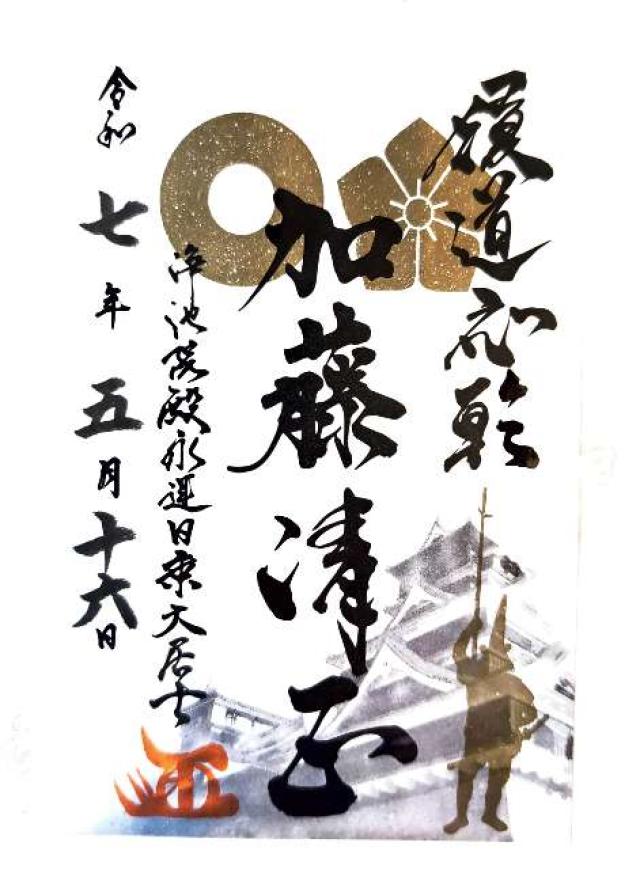 加藤清正
浄池院殿永運日乗大居士
令和七年五月十六日